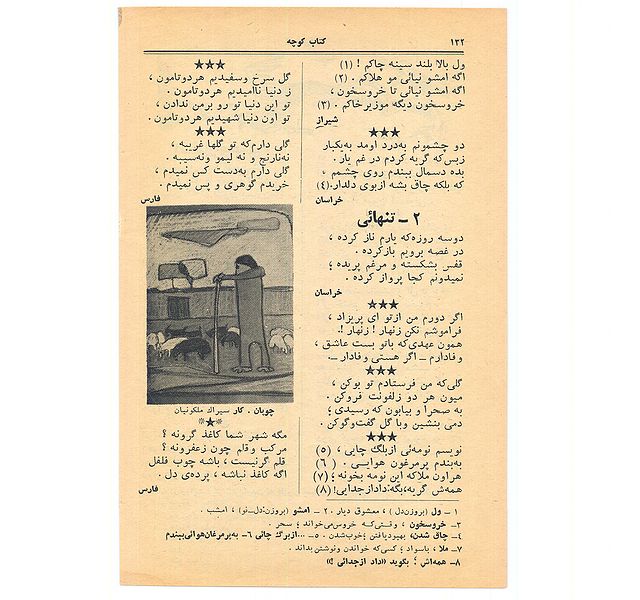 ۱۳۲
کتاب کوچه
ول بالا بلند سینه چاکم ! (۱)
اگه امشو نیائی مو هلاکم . (۲)
اگه امشو نیائی تا خروسخون ،
خروسخون دیگه موزیر خاکم . (۳)
شیراز
★★★
دو چشمونم به‌درد اومد به‌یکبار
زبس‌که گریه کردم در غم یار .
بده دسمال ببندم روی چشمم ،
که بلکه چاق بشه ازبوی دلدار.(۴)
خراسان
۲ ـ تنهائی
دوسه روزه‌که یارم ناز کرده ،
در غصه برویم بازکرده .
قفس بشکسته و مرغم پریده ؛
نمیدونم کجا پرواز کرده .
خراسان
★★★
اگر دورم من ازتو ای پریزاد ،
فراموشم نکن زنهار ! زنهار !.
همون عهدی‌که باتو بست عاشق ،
وفادارم ـ اگر هستی وفادار ـ.
★★★
گلی‌که من فرستادم تو بوکن ،
میون هر دو زلفونت فروکن .
به صحرا و بیابون که رسیدی ؛
دمی بنشین وبا گل گفت‌وگوکن .
★★★
نویسم نومه‌ئی ازبلگ چایی ، (۵)
به‌بندم پرمرغون هوایـی . (۶)
هراون ملاکه این نومه بخونه ؛ (۷)
همه‌ش گریه،بگه:دادازجدایی! (۸)
★★★
گل سرخ وسفیدیم هردوتامون ،
ز دنیا ناامیدیم هردوتامون .
تو این دنیا تو رو برمن ندادن ،
تو اون دنیا شهیدیم هردوتامون .
★★★
گلی دارم‌که تو گلها غریبه ،
نه‌نارنج و نه لیمو ونه‌سیبه .
گلی دارم به‌دست کس نمیدم ،
خریدم گوهری و پس نمیدم .
فارس
چوپان . کار سیراك ملکونیان
★★★
مگه شهر شما کاغذ گرونه ؟
مرکب وقلم چون زعفرونه ؟
قلم گرنیست ، باشه چوب فلفل
اگه کاغذ نباشه ، پرده‌ی دل .
فارس
۱ ـ ول (بروزن‌دل) ، معشوق دیار . ۲ ـ امشو (بروزن:دل‌ـ‌نو) ، امشب .
۳ ـ خروسخون ، وقتی‌که خروس‌می‌خواند ؛ سحر .
۴ ـ چاق شدن، بهبودیافتن ؛خوب‌شدن . ۵ ـ ...ازبرگ چائی ۶ ـ به‌پرمرغان‌هوائی‌ببندم
۷ ـ ملا ، باسواد ؛ کسی‌که خواندن ونوشتن‌بداند .
۸ ـ همه‌اش ؛ بگوید «داد ازجدائی !»